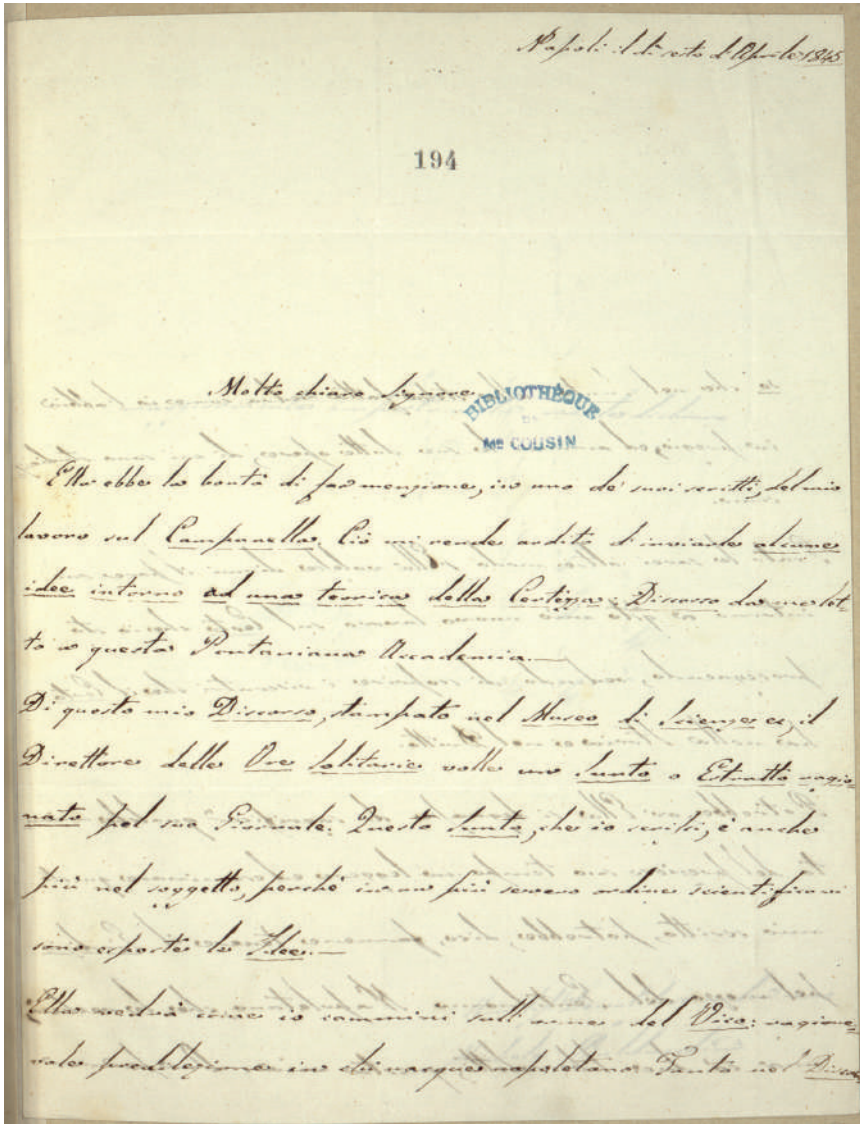 Napoli il dì sesto d'Aprile 1845
194
Molto chiaro Signore
BIBLIOTHÈQUE
DE
MR COUSIN
Ella ebbe la bontà di far menzione, in uno de' suoi scritti, del mio
lavoro sul Campanella. Ciò mi rende ardito d'inviarle alcune
idee intorno ad una teorica della Certezza: Discorso da me let-
to a questa Pontaniana Accademia.—
Di questo mio Discorso, stampato nel Museo di Scienze ec, il
Direttore delle Ore Solitarie volle un Sunto o Estratto ragio-
nato pel suo Giornale. Questo Sunto, che io scrissi, è anche
più nel soggetto, perchè in un più severo ordine scientifico vi
sono esposte le Idee.—
Ella vedrà come io cammini sull'orme del Vico: ragione-
vole predilezione in chi nacque napoletano. Tanto nel Discor-